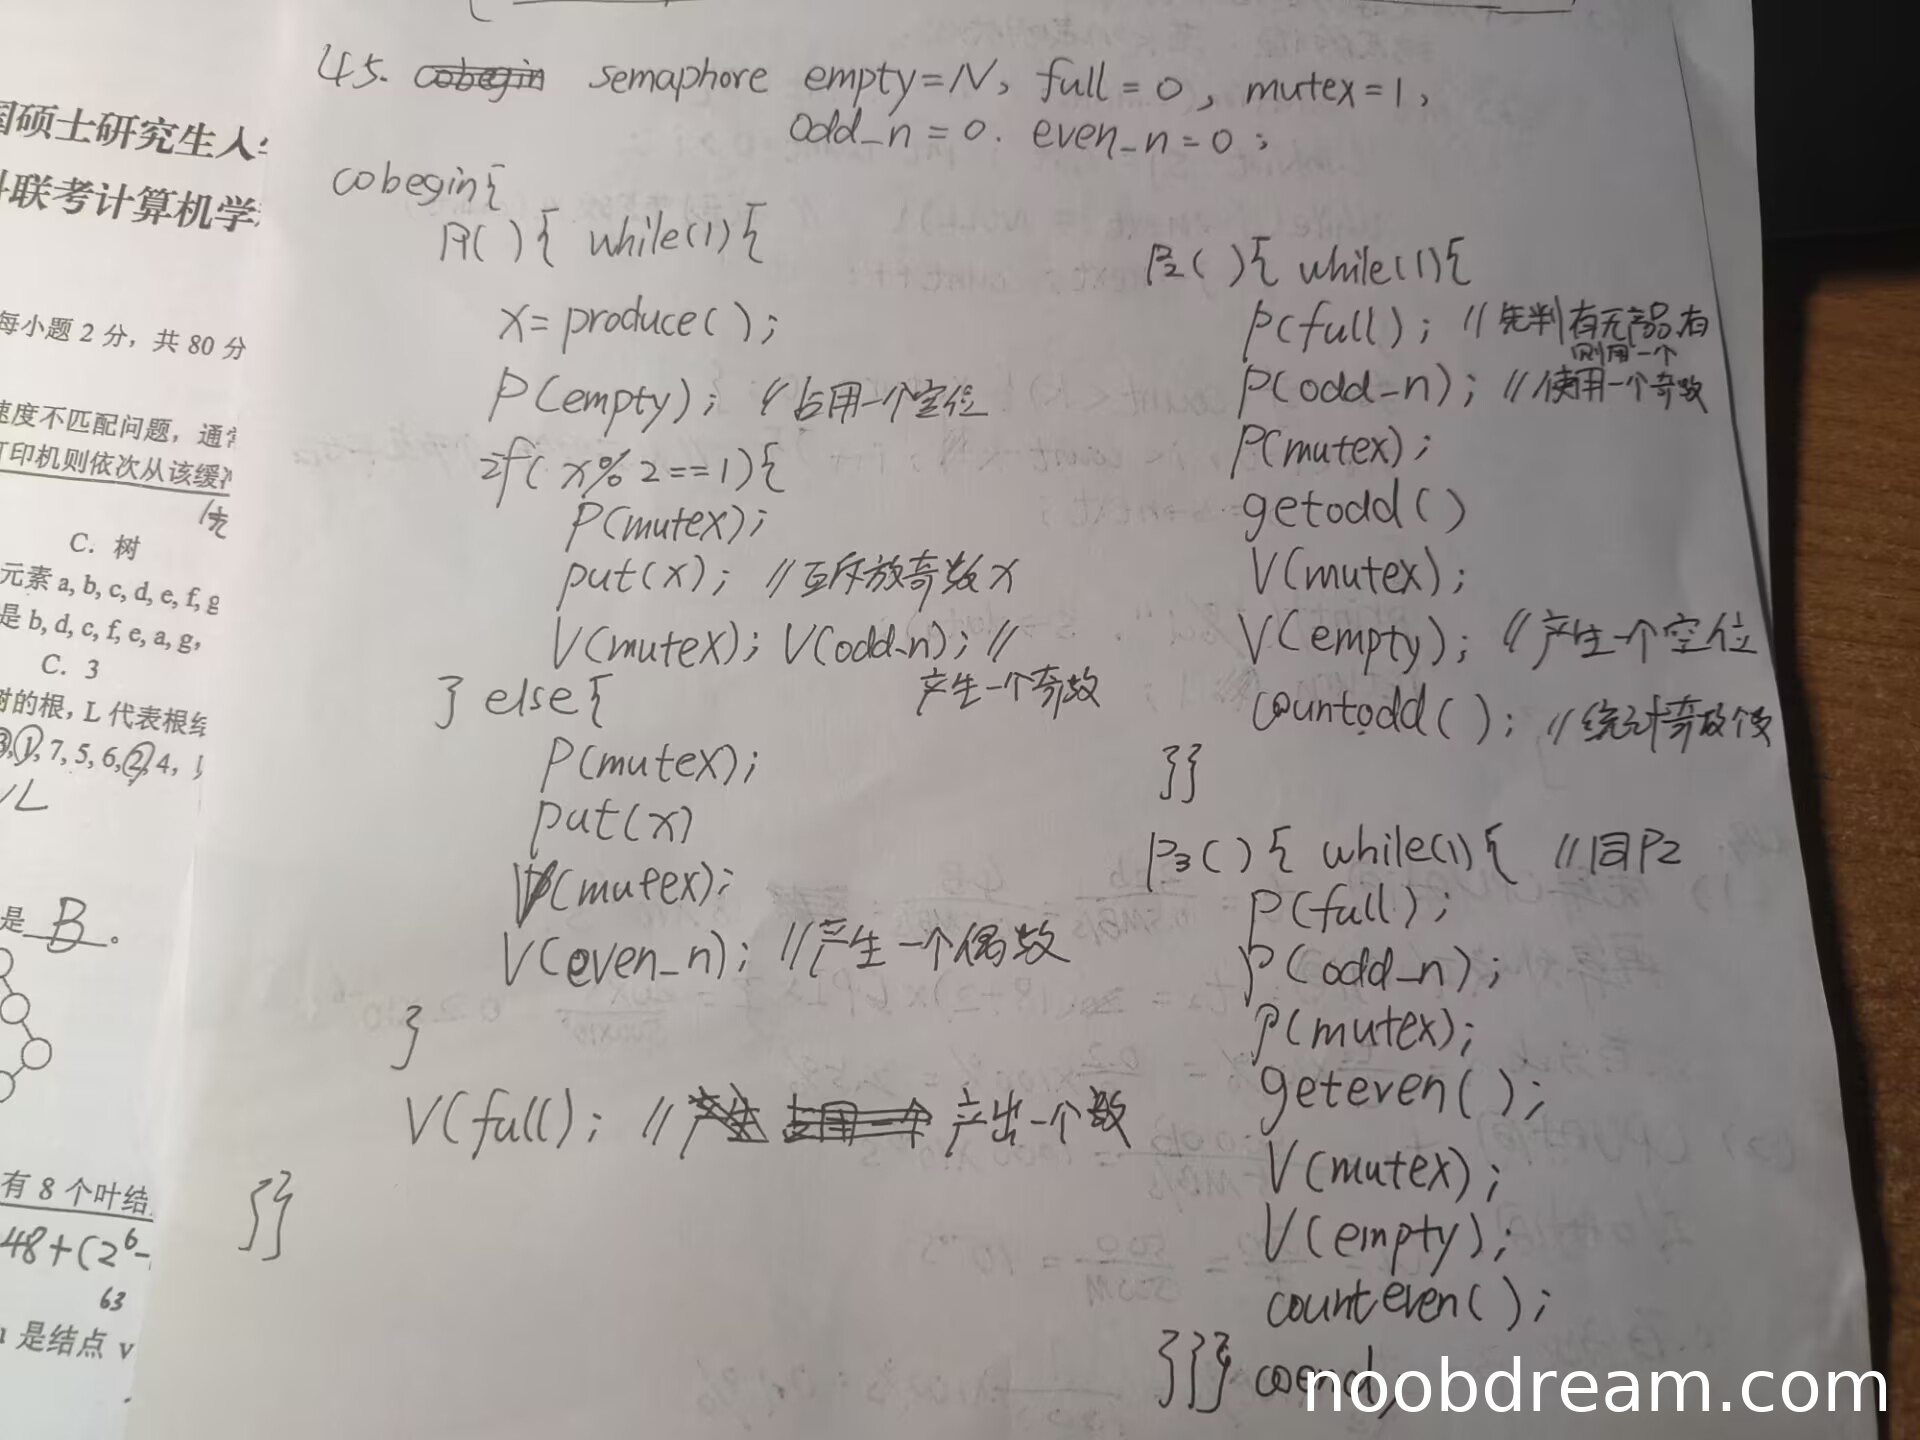 45. semaphore empty=N, full=0, mutex=1,
odd_n=0. even_n=0;
cobegin{
P1( ){ while(1){
x=produce( );
P(empty); //占用一个空位
if(x%2==1){
P(mutex);
put(x); //互斥放奇数x
V(mutex); V(odd_n); //
产生一个奇数
} else{
P(mutex);
put(x)
V(mutex);
V(even_n); //产生一个偶数
}
V(full); // 产出一个数
}}
P2( ){ while(1){
P(full); //先判有无产品,有
则用一个
P(odd_n); //使用一个奇数
P(mutex);
getodd( )
V(mutex);
V(empty); //产生一个空位
countodd( ); //统计奇数个数
}}
P3( ){ while(1){ //同P2
P(full);
P(odd_n);
P(mutex);
geteven( );
V(mutex);
V(empty);
counteven( );
}}} coend,
国硕士研究生入
联考计算机学
每小题 2 分，共 80 分
速度不匹配问题，通常
打印机则依次从该缓
C. 树
元素 a, b, c, d, e, f, g
是 b, d, c, f, e, a, g,
C. 3
树的根，L 代表根结
3,1, 7, 5, 6, 2, 4,
是 B 。
有 8 个叶结
48+(2^6-
63
是结点 v
noobdream.com